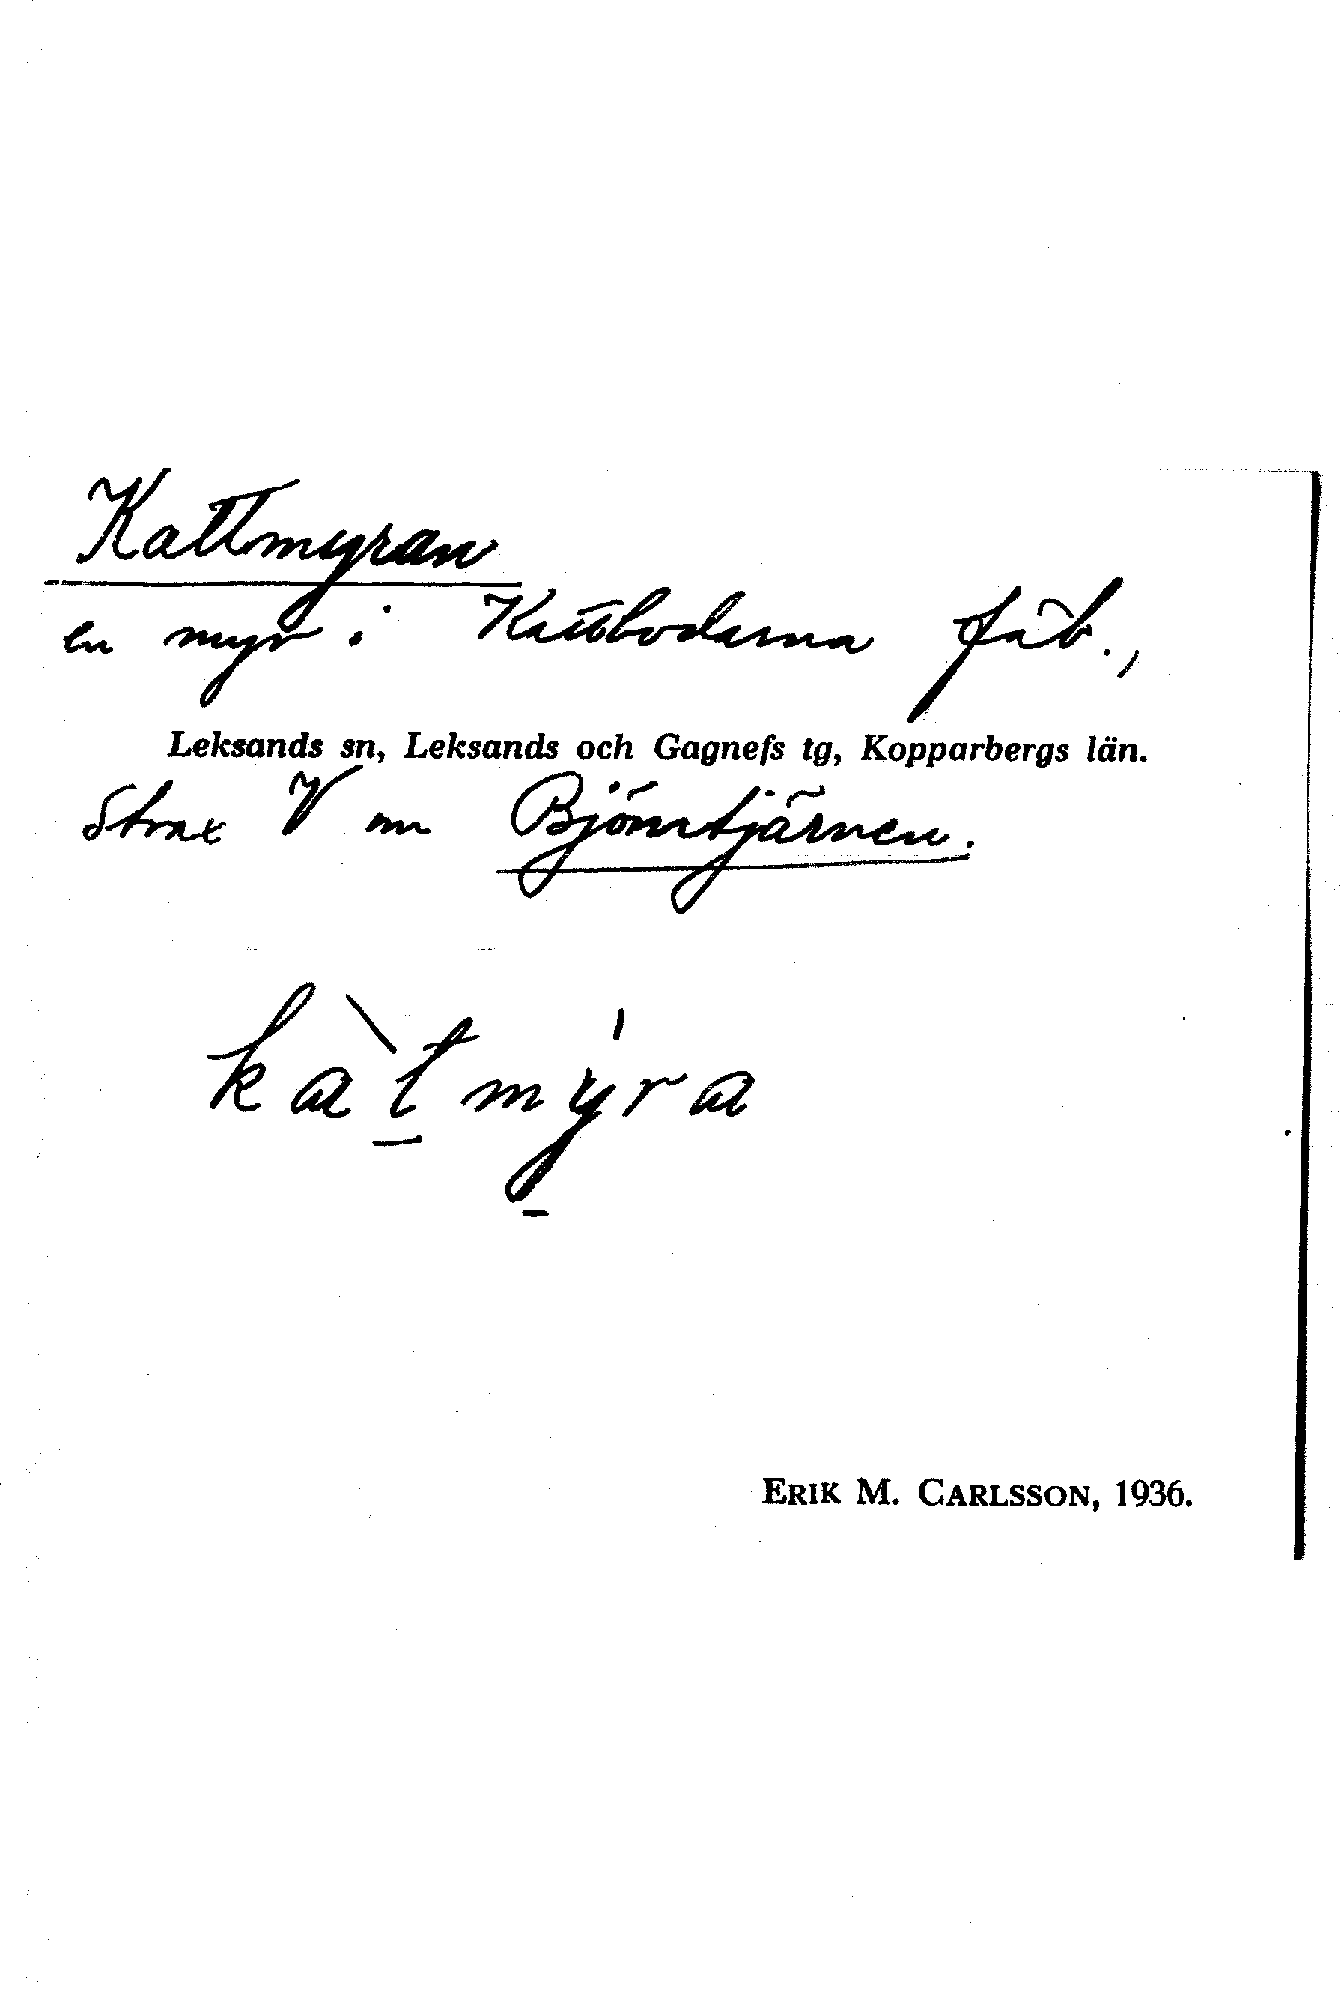 Kattmyran
en myr i Kattbodarna fäb.,
Leksands sn, Leksands och Gagnefs tg, Kopparbergs län.
Strax V om Björntjärnen.
kàtmy̱ra
ERIK M. CARLSSON, 1936.